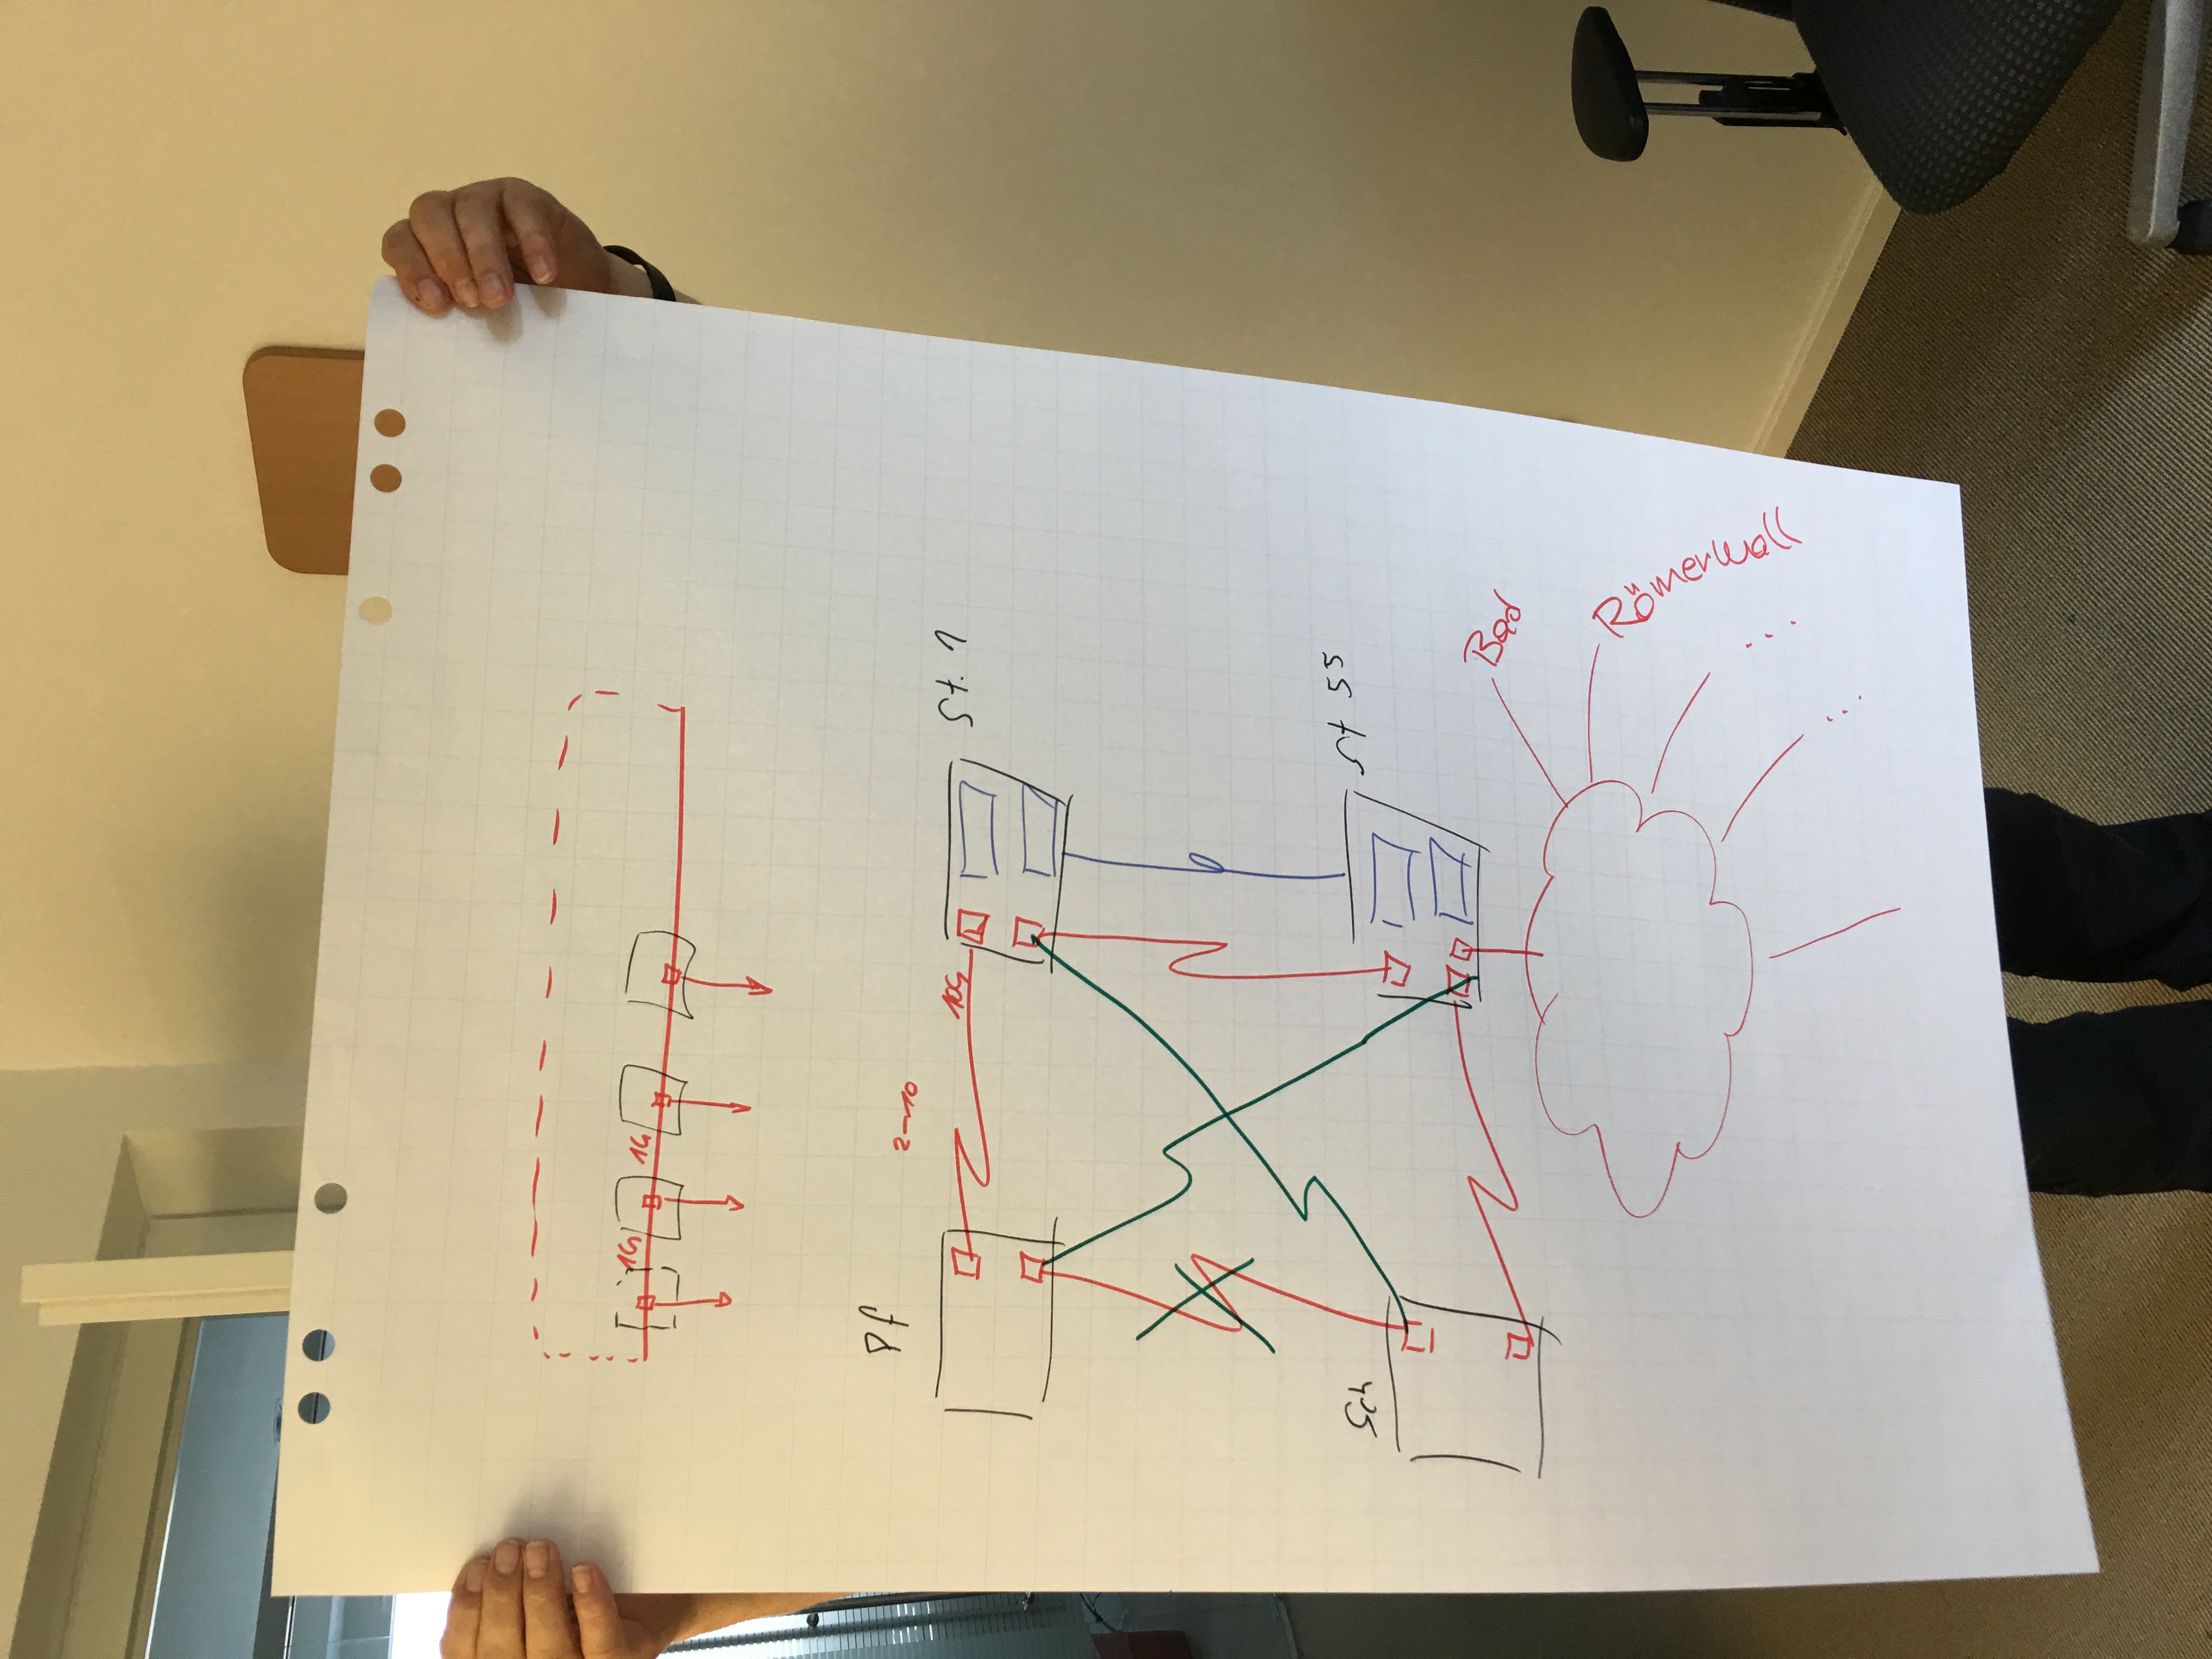 1G 1G
Pf
2-10
10G
St. 1
Sch
St 55
Bad
Römerwall